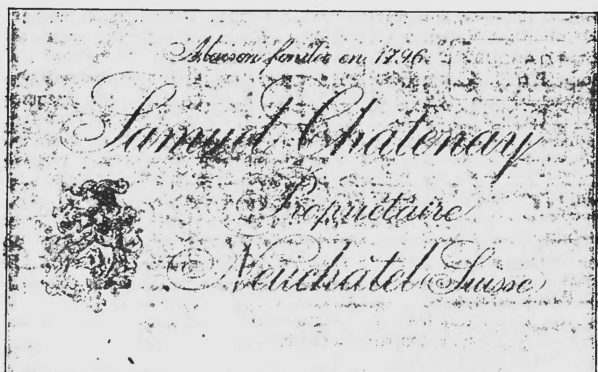 Maison fondée en 1796.
Samuel Châtenay
Propriétaire
Neuchâtel (Suisse)